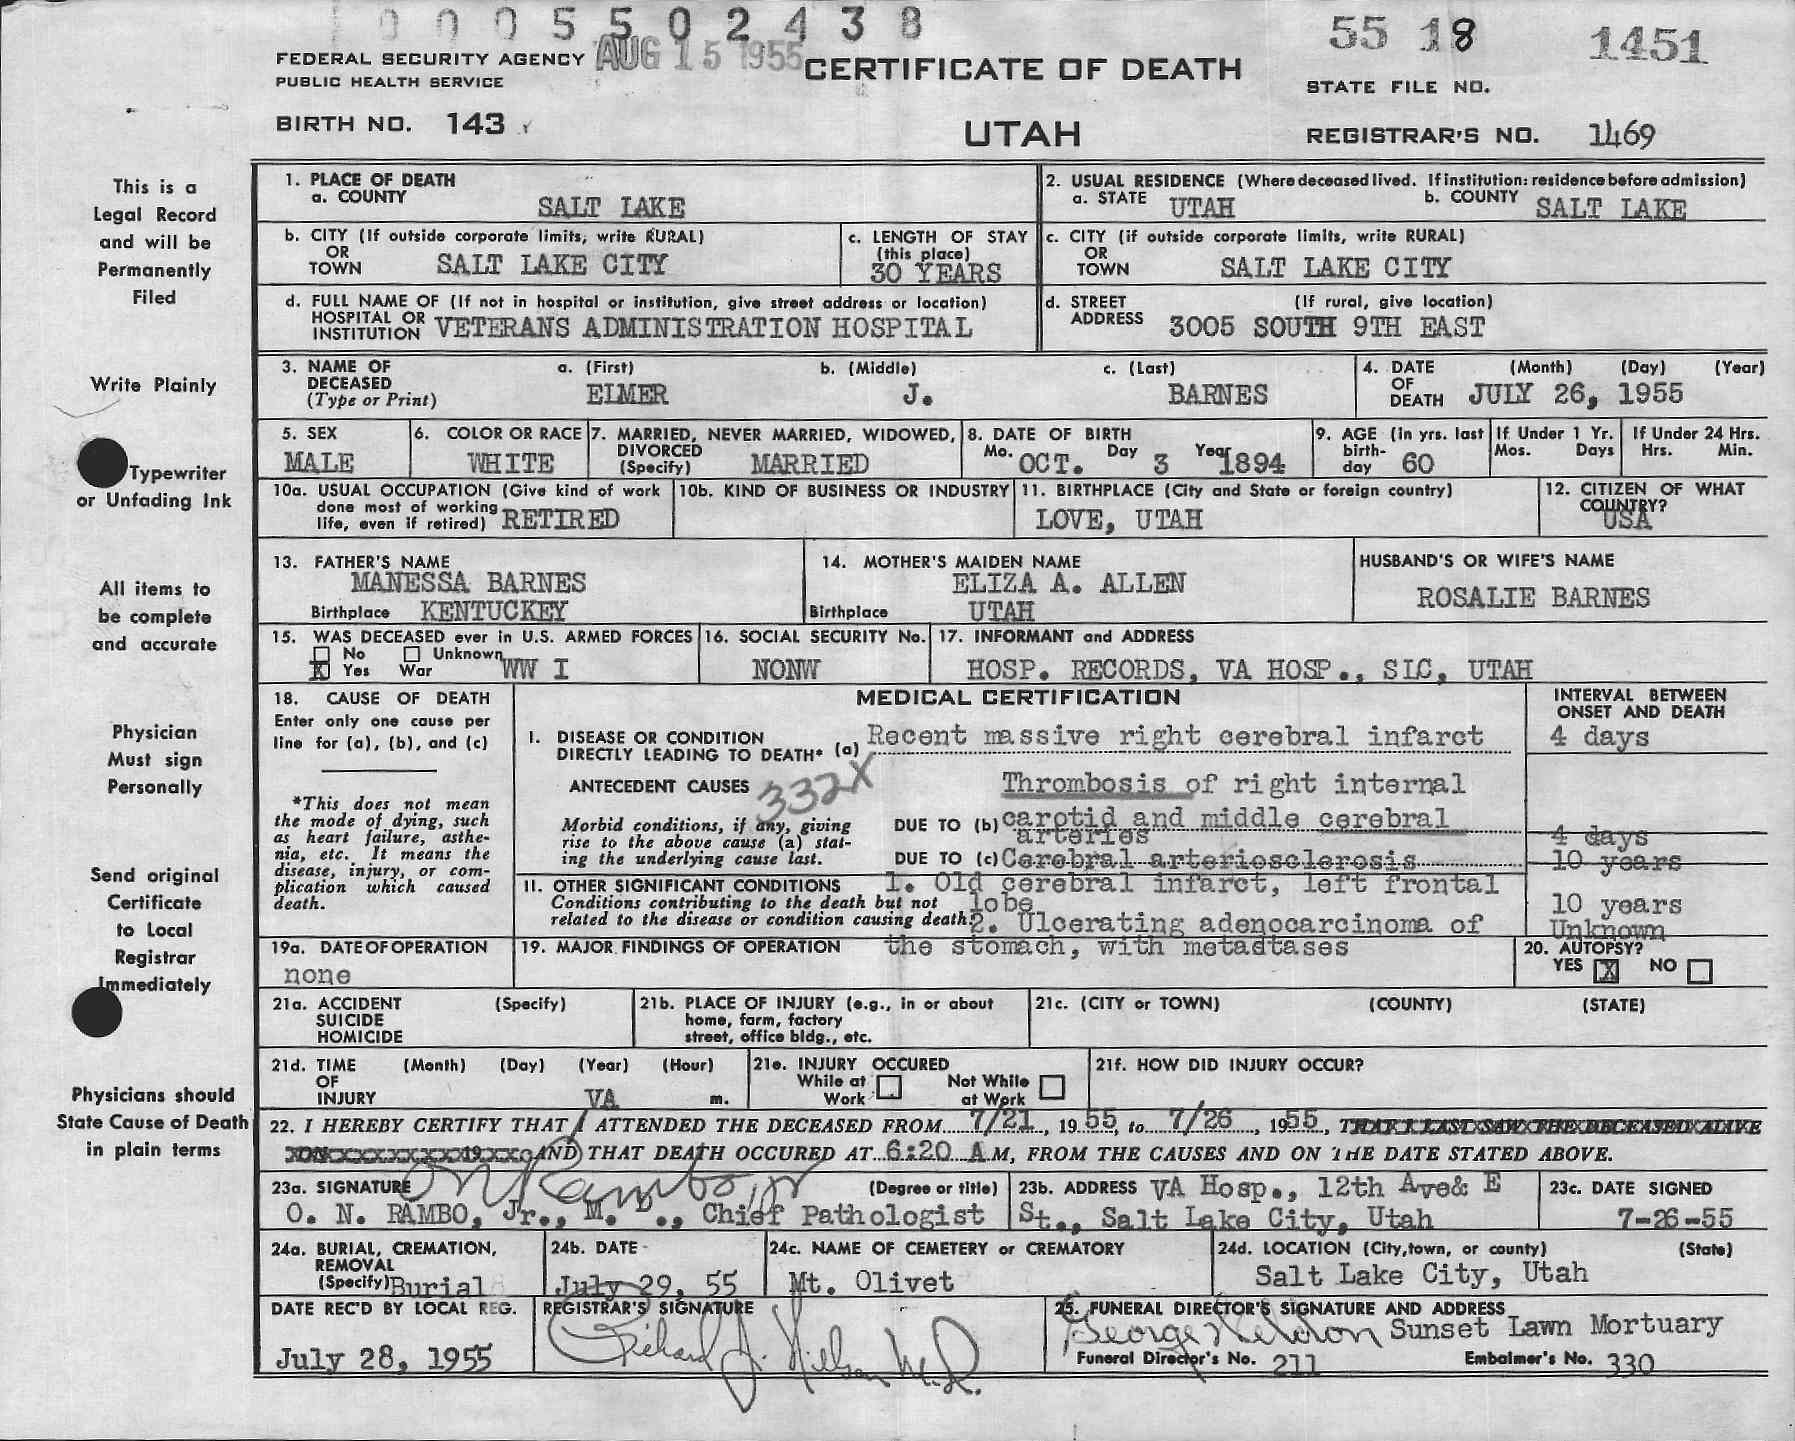 0005502438
55 18
1451
FEDERAL SECURITY AGENCY AUG 15 1955 CERTIFICATE OF DEATH
PUBLIC HEALTH SERVICE
STATE FILE NO.
BIRTH NO. 143
UTAH
REGISTRAR'S NO. 1469
This is a
Legal Record
and will be
Permanently
Filed
Write Plainly
Typewriter
or Unfading Ink
All items to
be complete
and accurate
Physician
Must sign
Personally
Send original
Certificate
to Local
Registrar
Immediately
Physicians should
State Cause of Death
in plain terms
1. PLACE OF DEATH
a. COUNTY
SALT LAKE
2. USUAL RESIDENCE (Where deceased lived. If institution: residence before admission)
a. STATE UTAH b. COUNTY SALT LAKE
b. CITY (If outside corporate limits, write RURAL)
OR
TOWN SALT LAKE CITY
c. LENGTH OF STAY
(this place)
30 YEARS
c. CITY (if outside corporate limits, write RURAL)
OR
TOWN SALT LAKE CITY
d. FULL NAME OF (If not in hospital or institution, give street address or location)
HOSPITAL OR
INSTITUTION VETERANS ADMINISTRATION HOSPITAL
d. STREET (If rural, give location)
ADDRESS 3005 SOUTH 9TH EAST
3. NAME OF a. (First) b. (Middle) c. (Last)
DECEASED
(Type or Print) ELMER J. BARNES
4. DATE (Month) (Day) (Year)
OF
DEATH JULY 26, 1955
5. SEX
MALE
6. COLOR OR RACE
WHITE
7. MARRIED, NEVER MARRIED, WIDOWED,
DIVORCED
(Specify) MARRIED
8. DATE OF BIRTH
Mo. OCT. Day 3 Year 1894
9. AGE (in yrs. last
birth-
day 60
If Under 1 Yr.
Mos. Days
If Under 24 Hrs.
Hrs. Min.
10a. USUAL OCCUPATION (Give kind of work
done most of working
life, even if retired) RETIRED
10b. KIND OF BUSINESS OR INDUSTRY
11. BIRTHPLACE (City and State or foreign country)
LOVE, UTAH
12. CITIZEN OF WHAT
COUNTRY?
USA
13. FATHER'S NAME
MANESSA BARNES
Birthplace KENTUCKEY
14. MOTHER'S MAIDEN NAME
ELIZA A. ALLEN
Birthplace UTAH
HUSBAND'S OR WIFE'S NAME
ROSALIE BARNES
15. WAS DECEASED ever in U.S. ARMED FORCES
No Unknown
X Yes War WW I
16. SOCIAL SECURITY No.
NONW
17. INFORMANT and ADDRESS
HOSP. RECORDS, VA HOSP., SLC, UTAH
18. CAUSE OF DEATH
Enter only one cause per
line for (a), (b), and (c)
*This does not mean
the mode of dying, such
as heart failure, asthe-
nia, etc. It means the
disease, injury, or com-
plication which caused
death.
MEDICAL CERTIFICATION
INTERVAL BETWEEN
ONSET AND DEATH
I. DISEASE OR CONDITION
DIRECTLY LEADING TO DEATH* (a) Recent massive right cerebral infarct 4 days
ANTECEDENT CAUSES 332X
Thrombosis of right internal
Morbid conditions, if any, giving
rise to the above cause (a) stat-
ing the underlying cause last.
DUE TO (b) carotid and middle cerebral
arteries 4 days
DUE TO (c) Cerebral arteriosclerosis 10 years
II. OTHER SIGNIFICANT CONDITIONS
Conditions contributing to the death but not
related to the disease or condition causing death
1. Old cerebral infarct, left frontal
lobe 10 years
2. Ulcerating adenocarcinoma of Unknown
the stomach, with metastases
19a. DATE OF OPERATION
none
19. MAJOR FINDINGS OF OPERATION
20. AUTOPSY?
YES X NO
21a. ACCIDENT (Specify)
SUICIDE
HOMICIDE
21b. PLACE OF INJURY (e.g., in or about
home, farm, factory
street, office bldg., etc.
21c. (CITY or TOWN) (COUNTY) (STATE)
21d. TIME (Month) (Day) (Year) (Hour)
OF
INJURY VA m.
21e. INJURY OCCURED
While at Work
Not While at Work
21f. HOW DID INJURY OCCUR?
22. I HEREBY CERTIFY THAT I ATTENDED THE DECEASED FROM 7/21, 1955, to 7/26, 1955, THAT I LAST SAW THE DECEASED ALIVE
ON 19 AND THAT DEATH OCCURED AT 6:20 A M, FROM THE CAUSES AND ON THE DATE STATED ABOVE.
23a. SIGNATURE ON Rambo, Jr (Degree or title)
O. N. RAMBO, Jr., M. D., Chief Pathologist
23b. ADDRESS VA Hosp., 12th Ave& E
St., Salt Lake City, Utah
23c. DATE SIGNED
7-26-55
24a. BURIAL, CREMATION,
REMOVAL
(Specify) Burial
24b. DATE
July 29, 55
24c. NAME OF CEMETERY or CREMATORY
Mt. Olivet
24d. LOCATION (City, town, or county) (State)
Salt Lake City, Utah
DATE REC'D BY LOCAL REG.
July 28, 1955
REGISTRAR'S SIGNATURE
Richard J. Nilson M.D.
25. FUNERAL DIRECTOR'S SIGNATURE AND ADDRESS
George Sunset Lawn Mortuary
Funeral Director's No. 211 Embalmer's No. 330